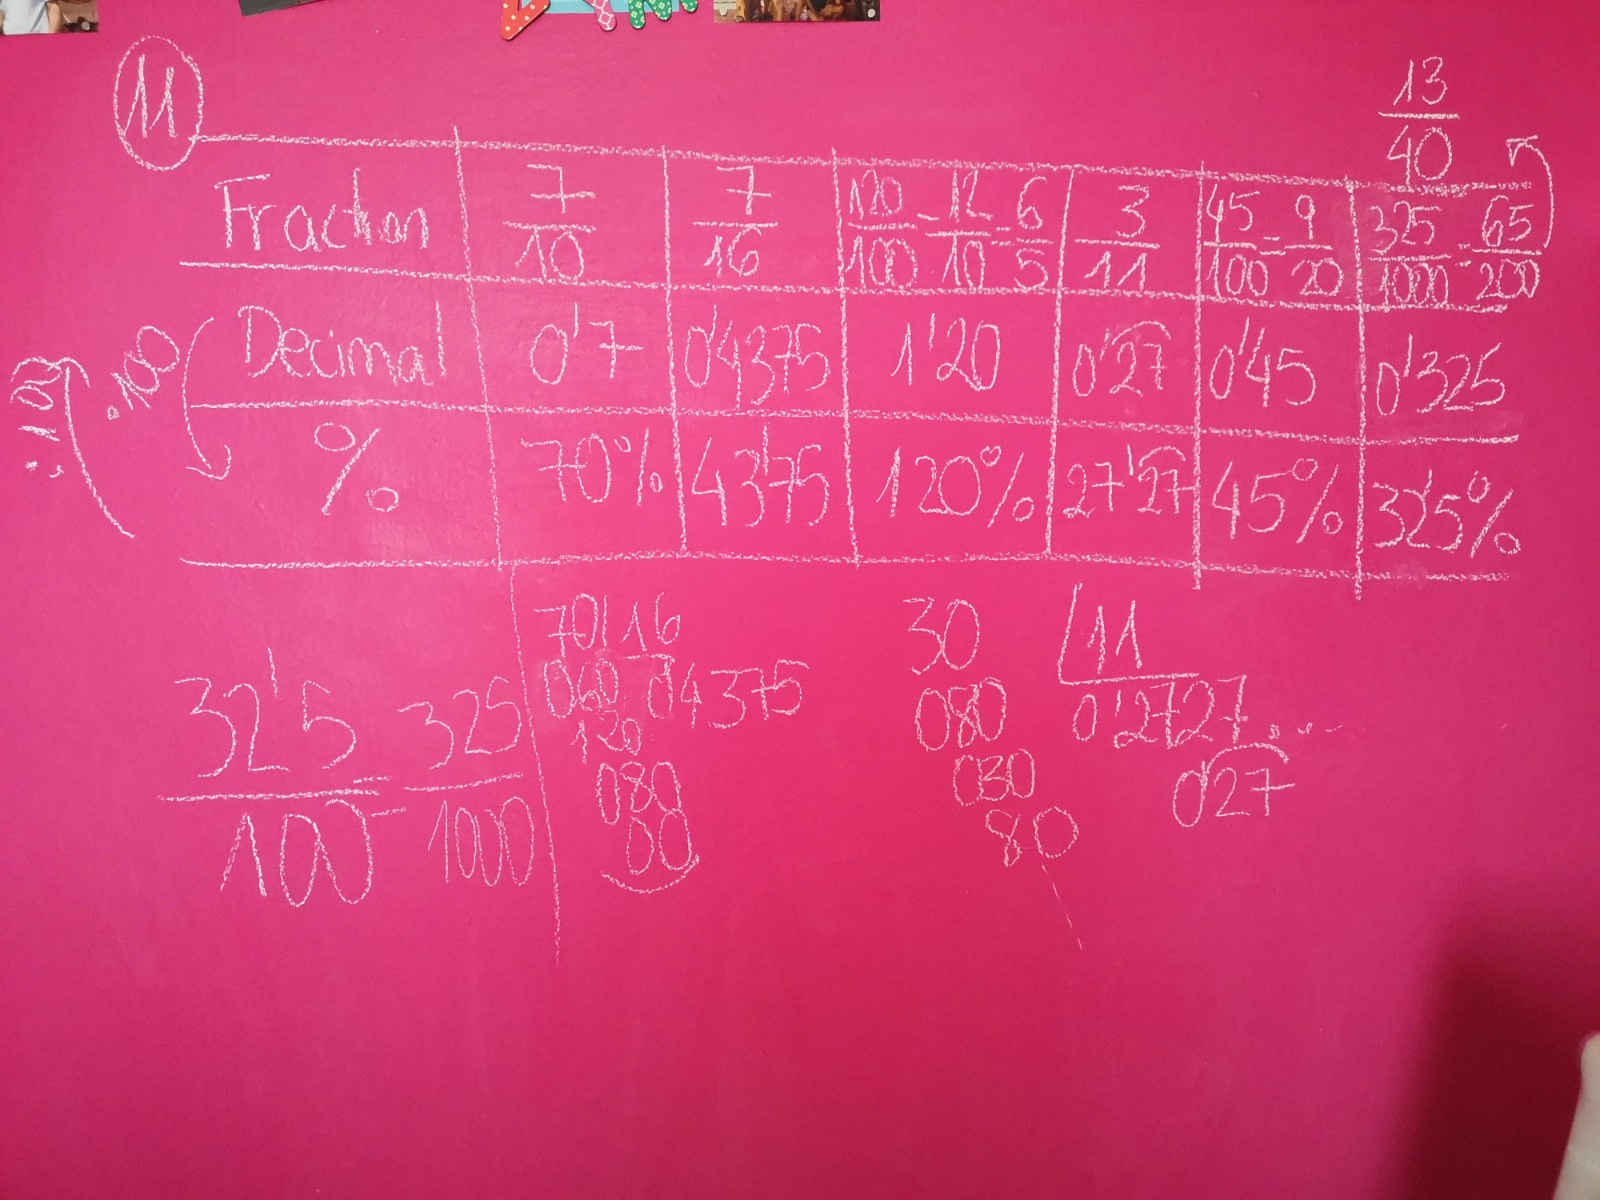 11
13/40
Fraction 7/10 7/16 120/100 = 12/10 = 6/5 3/11 45/100 = 9/20 325/1000 = 65/200
Decimal 0'7 0'4375 1'20 0'27 0'45 0'325
% 70% 43'75 120% 27'27 45% 32'5%
·100
:100
32'5/100 = 325/1000
70 16
060 0'4375
120
080
00
30 11
080 0'2727...
030 0'27
80